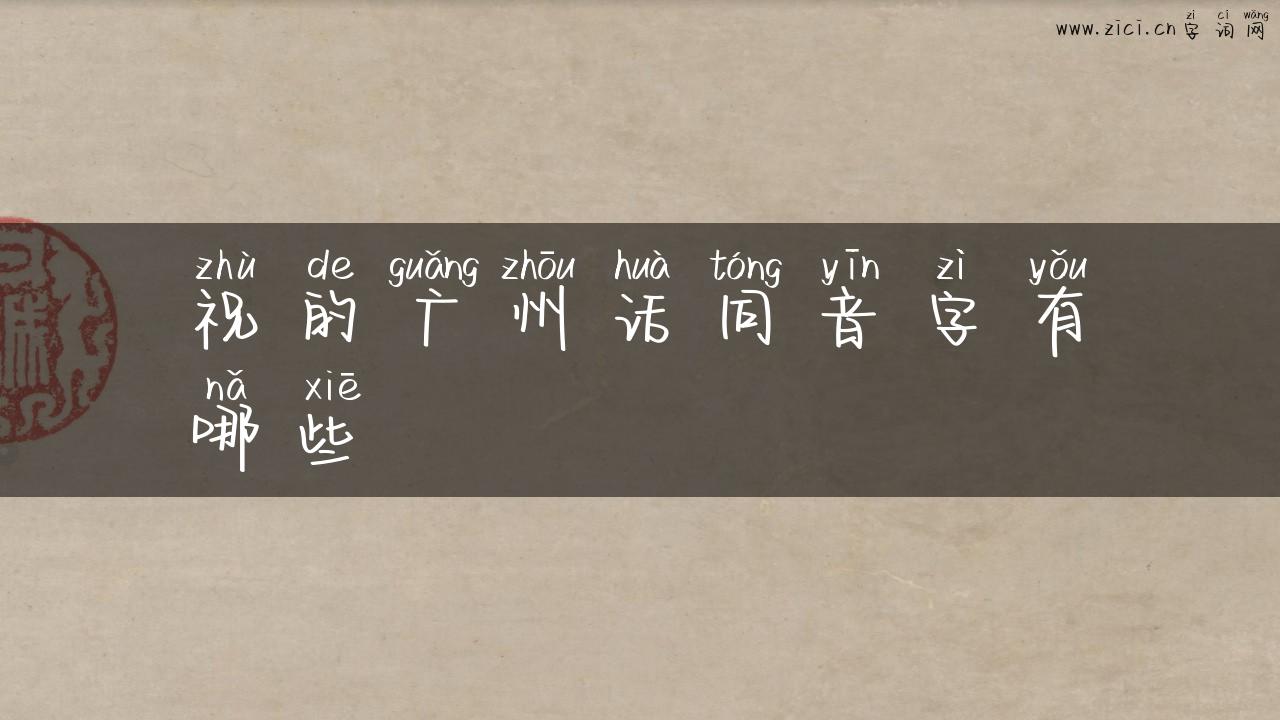 zì cí wǎng
www.zici.cn 字词网
zhù de guǎng zhōu huà tóng yīn zì yǒu
祝的广州话同音字有
nǎ xiē
哪些